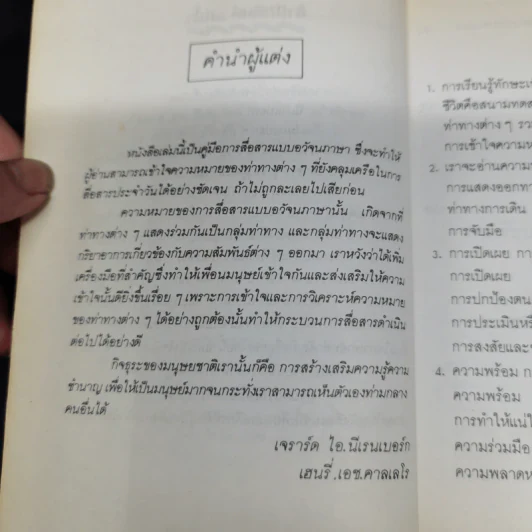 คำนำผู้แต่ง
หนังสือเล่มนี้เป็นคู่มือการสื่อสารแบบอวัจนภาษา ซึ่งจะทำให้
ผู้อ่านสามารถเข้าใจความหมายของท่าทางต่าง ๆ ที่ยังคลุมเครือในการ
สื่อสารประจำวันได้อย่างชัดเจน ถ้าไม่ถูกละเลยไปเสียก่อน
ความหมายของการสื่อสารแบบอวัจนภาษานั้น เกิดจากที่
ท่าทางต่าง ๆ แสดงร่วมกันเป็นกลุ่มท่าทาง และกลุ่มท่าทางจะแสดง
กริยาอาการเกี่ยวข้องกับความสัมพันธ์ต่าง ๆ ออกมา เราหวังว่าได้เพิ่ม
เครื่องมือที่สำคัญซึ่งทำให้เพื่อนมนุษย์เข้าใจกันและส่งเสริมให้ความ
เข้าใจนั้นดียิ่งขึ้นเรื่อย ๆ เพราะการเข้าใจและการวิเคราะห์ความหมาย
ของท่าทางต่าง ๆ ได้อย่างถูกต้องนั้นทำให้กระบวนการสื่อสารดำเนิน
ต่อไปได้อย่างดี
กิจธุระของมนุษยชาติเรานั้นก็คือ การสร้างเสริมความรู้ความ
ชำนาญ เพื่อให้เป็นมนุษย์มากจนกระทั่งเราสามารถเห็นตัวเองท่ามกลาง
คนอื่นได้
เจราร์ด ไอ.นีเรนเบอร์ก
เฮนรี่ .เอช.คาลเลโร
1. การเรียนรู้ทักษะ
ชีวิตคือสนามทดส
ท่าทางต่าง ๆ
การเข้าใจความ
2. เราจะอ่านความ
การแสดงออกทา
ท่าทางการเดิน
การจับมือ
3. การเปิดเผย
การเปิดเผย
การปกป้องตน
การประเมิน
การสงสัยและ
4. ความพร้อม
ความพร้อม
การทำให้แน่ใ
ความร่วมมือ
ความพลาด